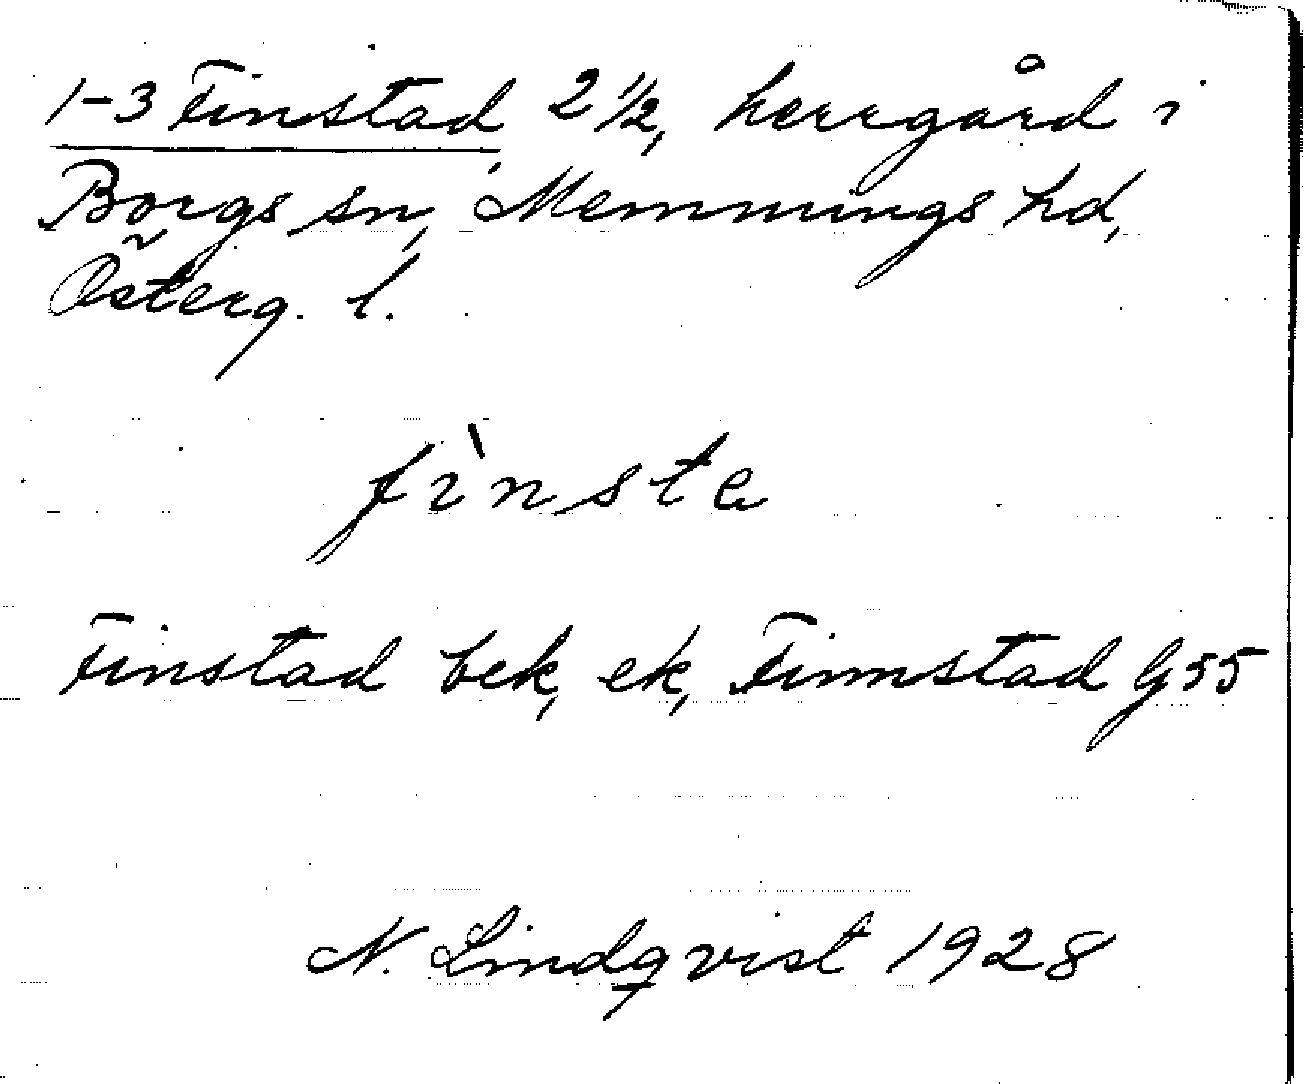 1-3 Finstad 2 1/2, herrgård i
Borgs sn, Memmings hd,
Österg. l.
fìnsta
Finstad bek, ek, Finnstad G55
N. Lindqvist 1928